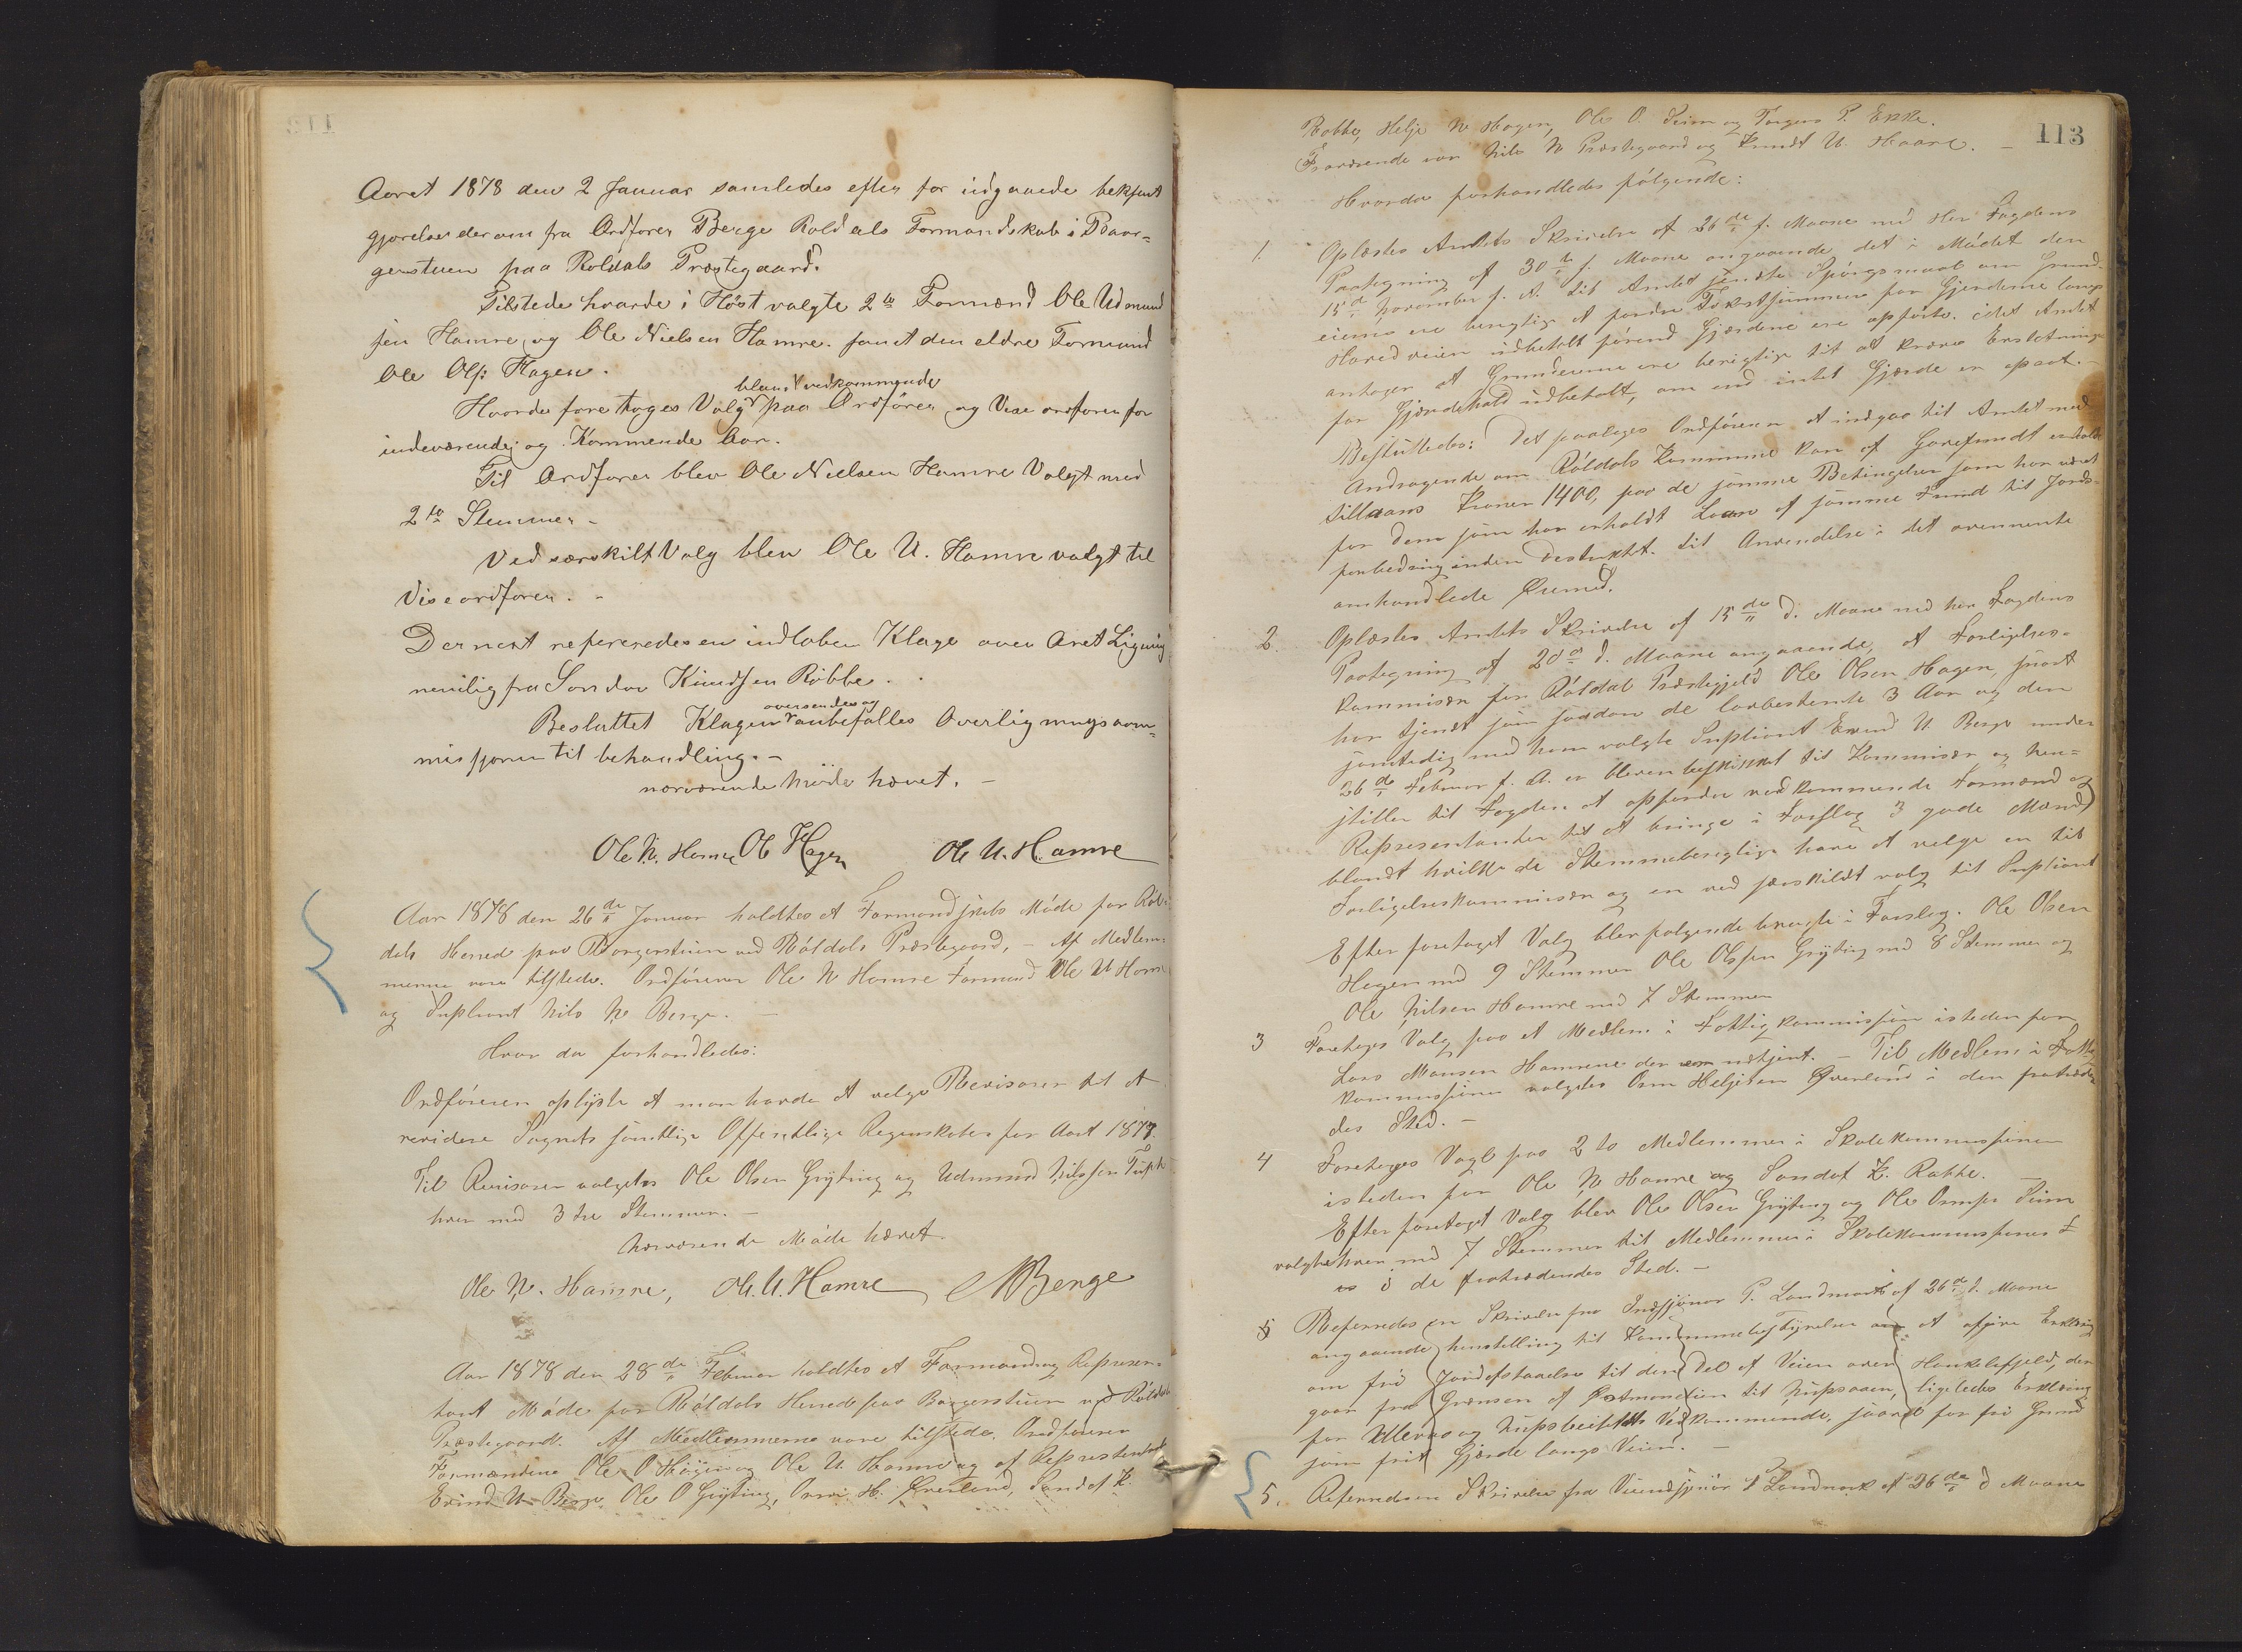 Aaret 1878 den 2 Januar samledes efter for udgaaede bekjent
gjørelse derom fra Ordfører Berge Roldals Formandskab i Baar=
gerstuen paa Roldals Præstegaard.
Tilstede hvarde i Høst valgte 2to Formænd Ole Udmund
sen Hamre og Ole Nielsen Hamre. samt den eldre Formand
Ole Ols: Hagen.
blant vedkommende
Hvorda foretoges Valg paa Ordfører og Vise ordforer for
indeværende og Kommende Aar.
Til Ordforer blev Ole Nielsen Hamre Valgt med
2to Stemmer -
Ved særskilt Valg blev Ole U. Hamre valgt til
Viseordforer. -
Dernest refereredes en indloben Klage over Aaret Ligning
nemlig fra Sondov Kundsen Røbbe.
oversendes og
Besluttet Klagen anbefalles Overligningscom=
misjonen til behandling. -
nærværende Møde hævet. -
Ole N. Hamre Ole Hagen Ole U. Hamre
Aar 1878 den 26de Januar holdtes et Formandskabs Møde for Røl=
dals Herred paa Borgerstuen ved Røldals Præstegaard. - Af Medlem=
merne vare tilstede. Ordføreren Ole N Hamre Formand Ole U Hamre
og Supliant Nils N. Berge. -
Hvor da forhandledes:
Ordføreren oplyste at man havde at velge Revisorer til at
revidere Sognets samtlige Offentlige Regnskaber for Aaret 1877.
Til Revisorer valgtes Ole Olsen Gryting og Udmund Nilssen
hver med 3 tre Stemmer. -
Nærværende Møde hævet.
Ole N. Hamre, Ole. U. Hamre NNBerge
Aar 1878 den 28de Februar holdtes et Formand og Represen=
tant Møde for Røldals Herred paa Borgerstuen ved Røldals
Præstegaard. Af Medlemmerne vare tilstede. Ordføreren
Formændene Ole O Hagen og Ole U. Hamre og af Representanter
Erind U. Berge Ole O Gryting, Orm H. Øverland, Sandof K.
113
Rabbe, Helje N. Hagen, Ole O. Seim og Torgers P. Enkke.
Fraværende var Nils N Præstegaard og Knudt U. Haare. -
Hvorda forhandledes følgende:
1. Oplæstes Amtets Skrivelse af 26de f. Maane med Her Fogdens
Paategning af 30te f. Maane angaaende det i Mødet den
15de November f. A. til Amtet sendte Spørgsmaal om Grund=
eierne ere berigtige at fordre Takstsummen for Gjerderne langs
Hovedveien udbetalt førend Gjærderne ere opførte. idet Amtet
antager at Grundeierne ere berigtige til at kræve Erstatninge
for Gjerdehold udbetalt, om end intet Gjærde er opsat. -
Besluttedes: Det paalægges Ordføreren at indgaa til Amtet med
Andragende om Røldals Kommune kan af Havefundt erholde
tillaans Kroner 1400, paa de samme Betingelser som har været
for dem som har erholdt Laan af samme Fund til Jords=
forbedring inden Destriktet. til Anvendelse i det ovennente
omhandlede Øiemed.
2. Oplæstes Amtets Skrivelse af 15de d. Maane med her Fogdens
Paategning af 20de d. Maane angaaende, at Forligelses=
kommisær for Røldal Præstegjeld Ole Olsen Hagen, snart
har tjendt som saadan de lovbestemte 3 Aar og den
samtidig med ham valgte Supliant Erind U. Berge under
26de Februar f. A. er bleven beskikket til Kommisær og hen=
stiller til Fogden at opfordre vedkommende Formænd og
Representanter til at bringe i Forslag 3 gode Mænd
blandt hvilke de Stemmeberigtige have at velge en til
Forligelseskommisær og en ved særskildt valg til Supliant
Efter foretaget Valg blev følgende bragte i Forslag. Ole Olsen
Hagen med 9 Stemmer Ole Olsen Gryting med 8 Stemmer og
Ole Nilsen Hamre med 7 Stemmer
3 Foretoges Valg paa et Medlem i Fattigkommissjonen isteden for
Lars Monsen Hamrene der udtjent. - Til Medlem i Fattig
kommissionen valgtes Orm Heljesen Øverland i den fratræden
des Sted. -
4 Foretoges Valg paa 2 to Medlemmer i Skolekommissjonen
isteden for Ole N. Hamre og Sandof K. Rabbe. -
Efter foretaget Valg blev Ole Olsen Gryting og Ole Ormsen Seim
valgte hver med 7 Stemmer til Medlemmer i Skolekommissjonen
i de fratrædendes Sted. -
5 Refereredes en Skrivelse fra Indsjenør P. Landmark af 26de d. Maane
angaaende henstilling til Kommunebestyrelsen om at afgive Erklæring
om fri Jordafstaaelse til den Del af Veien over Haukelifjeld, der
gaar fra Grænsen af til Nupsaaen, ligeledes Erklæring
for og Vedkommende, saavel for fri Grund
som frit Gjerde langs Veien. -
5. Refereredes en Skrivelse fra Veiindsjenør P Landmark af 26de d Maane